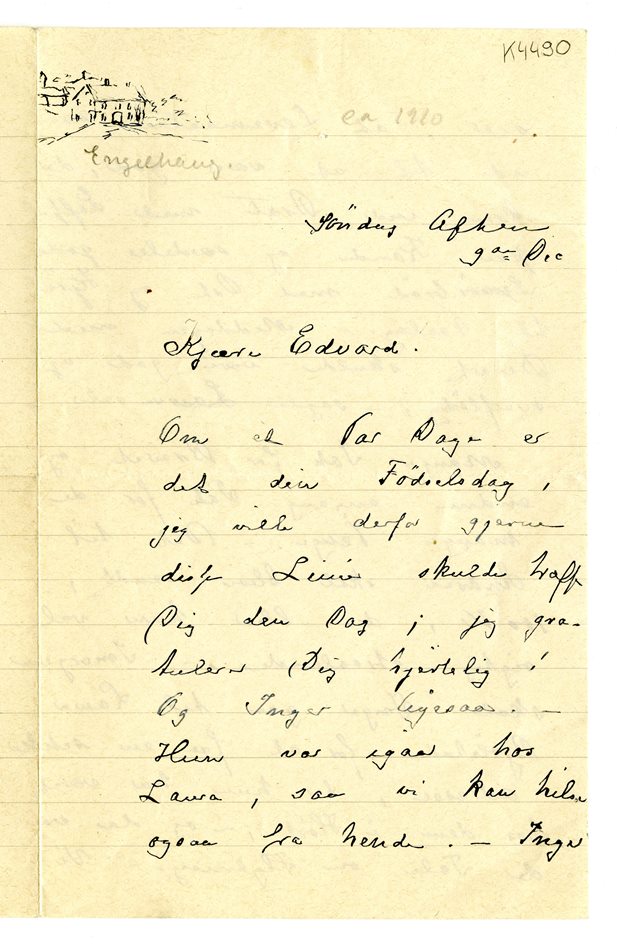 K4490
ca. 1910
Engelhaug.
Søndag Aften
9de Dec
Kjære Edvard.
Om et Par Dage er
det din Födselsdag,
jeg vilde derfor gjerne
disse Linier skulde træffe
Dig den Dag; jeg gra-
tulerer Dig hjertelig!
Og Inger ligesaa. —
Hun var igaar hos
Laura, saa vi kan hilse
ogsaa fra hende. — Inger